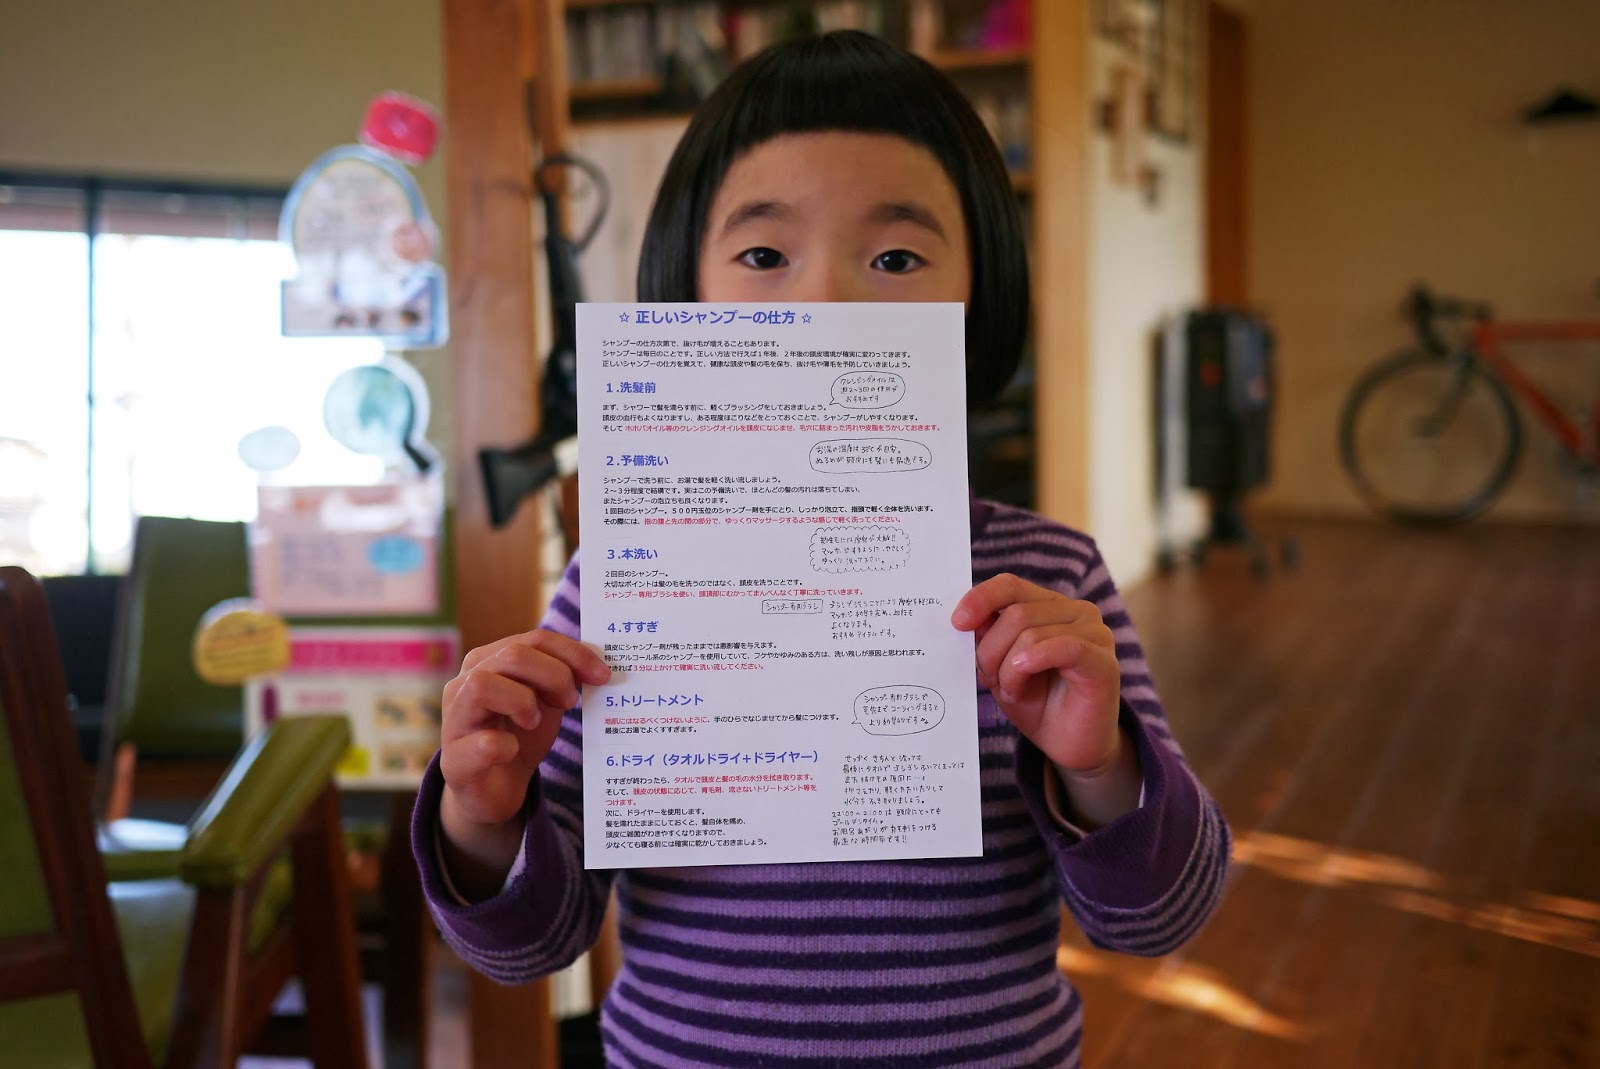 ☆ 正しいシャンプーの仕方 ☆
シャンプーの仕方次第で、抜け毛が増えることもあります。
シャンプーは毎日のことです。正しい方法で行えば１年後、２年後の頭皮環境が確実に変わってきます。
正しいシャンプーの仕方を覚えて、健康な頭皮や髪の毛を保ち、抜け毛や薄毛を予防していきましょう。
１.洗髪前
クレンジングオイルは
週２〜３回の使用が
おすすめです
まず、シャワーで髪を濡らす前に、軽くブラッシングをしておきましょう。
頭皮の血行もよくなりますし、ある程度ほこりなどをとっておくことで、シャンプーがしやすくなります。
そして ホホバオイル等のクレンジングオイルを頭皮になじませ、毛穴に詰まった汚れや皮脂をうかしておきます。
２.予備洗い
お湯の温度は38℃が目安。
ぬるめが頭皮にも髪にも最適です。
シャンプーで洗う前に、お湯で髪を軽く洗い流しましょう。
２〜３分程度で結構です。実はこの予備洗いで、ほとんどの髪の汚れは落ちてしまい、
またシャンプーの泡立ちも良くなります。
１回目のシャンプー。５００円玉位のシャンプー剤を手にとり、しっかり泡立て、指頭で軽く全体を洗います。
その際には、指の腹と先の間の部分で、ゆっくりマッサージするような感じで軽く洗ってください。
３.本洗い
新生毛には摩擦が大敵!!
マッサージするように、やさしく
ゆっくり洗って下さい。
２回目のシャンプー。
大切なポイントは髪の毛を洗うのではなく、頭皮を洗うことです。
シャンプー専用ブラシを使い、頭頂部にむかってまんべんなく丁寧に洗っていきます。
シャンプー専用ブラシ
ブラシで洗うことにより摩擦を軽減し、
マッサージ効果を高め、血行も
よくなります。
おすすめアイテムです。
４.すすぎ
頭皮にシャンプー剤が残ったままでは悪影響を与えます。
特にアルコール系のシャンプーを使用していて、フケやかゆみのある方は、洗い残しが原因と思われます。
できれば３分以上かけて確実に洗い流してください。
５.トリートメント
シャンプー専用ブラシで
毛先までコーティングすると
より効果的です
地肌にはなるべくつけないように、手のひらでなじませてから髪につけます。
最後にお湯でよくすすぎます。
６.ドライ（タオルドライ+ドライヤー）
すすぎが終わったら、タオルで頭皮と髪の毛の水分を拭き取ります。
そして、頭皮の状態に応じて、育毛剤、流さないトリートメント等を
つけます。
次に、ドライヤーを使用します。
髪を濡れたままにしておくと、髪自体を痛め、
頭皮に雑菌がわきやすくなりますので、
少なくても寝る前には確実に乾かしておきましょう。
せっかくきちんと洗っても
最後にタオルでゴシゴシふいてしまっては
抜け毛の原因に…。
押さえたり、軽くたたいたりして
水分をふき取りましょう。
22:00〜2:00は頭皮にとっても
ゴールデンタイム。
お風呂あがりが育毛剤をつける
最適な時間帯です!!